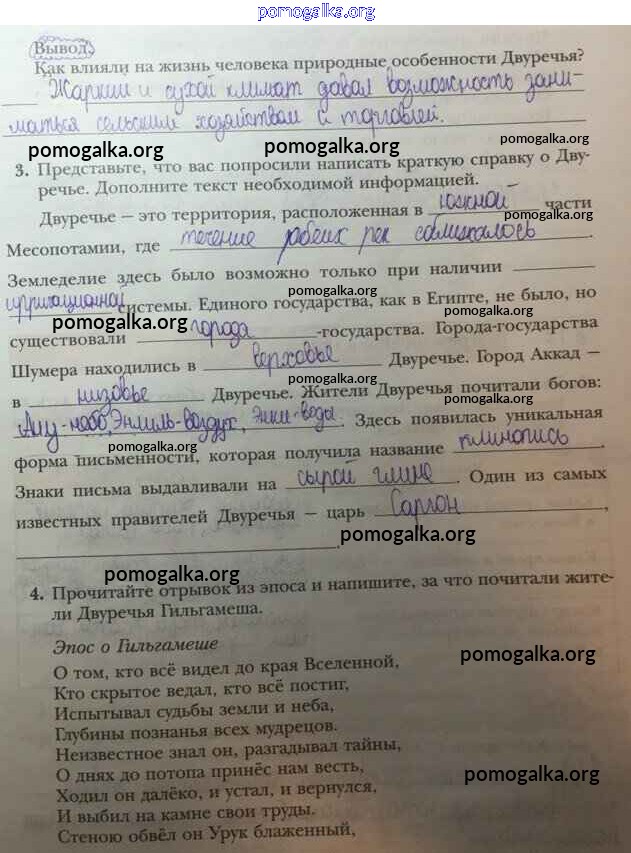 pomogalka.org
Вывод.
Как влияли на жизнь человека природные особенности Двуречья?
Жаркий и сухой климат давал возможность зани-
маться сельским хозяйством и торговлей.
pomogalka.org
pomogalka.org
pomogalka.org
3. Представьте, что вас попросили написать краткую справку о Дву-
речье. Дополните текст необходимой информацией.
pomogalka.org
Двуречье — это территория, расположенная в южной части
pomogalka.org
Месопотамии, где течение обеих рек сближалось.
pomogalka.org
Земледелие здесь было возможно только при наличии
pomogalka.org
ирригационной системы. Единого государства, как в Египте, не было, но
pomogalka.org
pomogalka.org
существовали города-государства. Города-государства
Шумера находились в верховье Двуречье. Город Аккад —
pomogalka.org
в низовье Двуречье. Жители Двуречья почитали богов:
pomogalka.org
Ану-небо, Энлиль-воздух, Энки-воды. Здесь появилась уникальная
pomogalka.org
форма письменности, которая получила название клинопись.
pomogalka.org
Знаки письма выдавливали на сырой глине. Один из самых
известных правителей Двуречья — царь Саргон,
pomogalka.org
pomogalka.org
4. Прочитайте отрывок из эпоса и напишите, за что почитали жите-
ли Двуречья Гильгамеша.
Эпос о Гильгамеше
pomogalka.org
О том, кто всё видел до края Вселенной,
Кто скрытое ведал, кто всё постиг,
Испытывал судьбы земли и неба,
Глубины познанья всех мудрецов.
Неизвестное знал он, разгадывал тайны,
О днях до потопа принёс нам весть,
pomogalka.org
Ходил он далёко, и устал, и вернулся,
И выбил на камне свои труды.
Стеною обвёл он Урук блаженный,